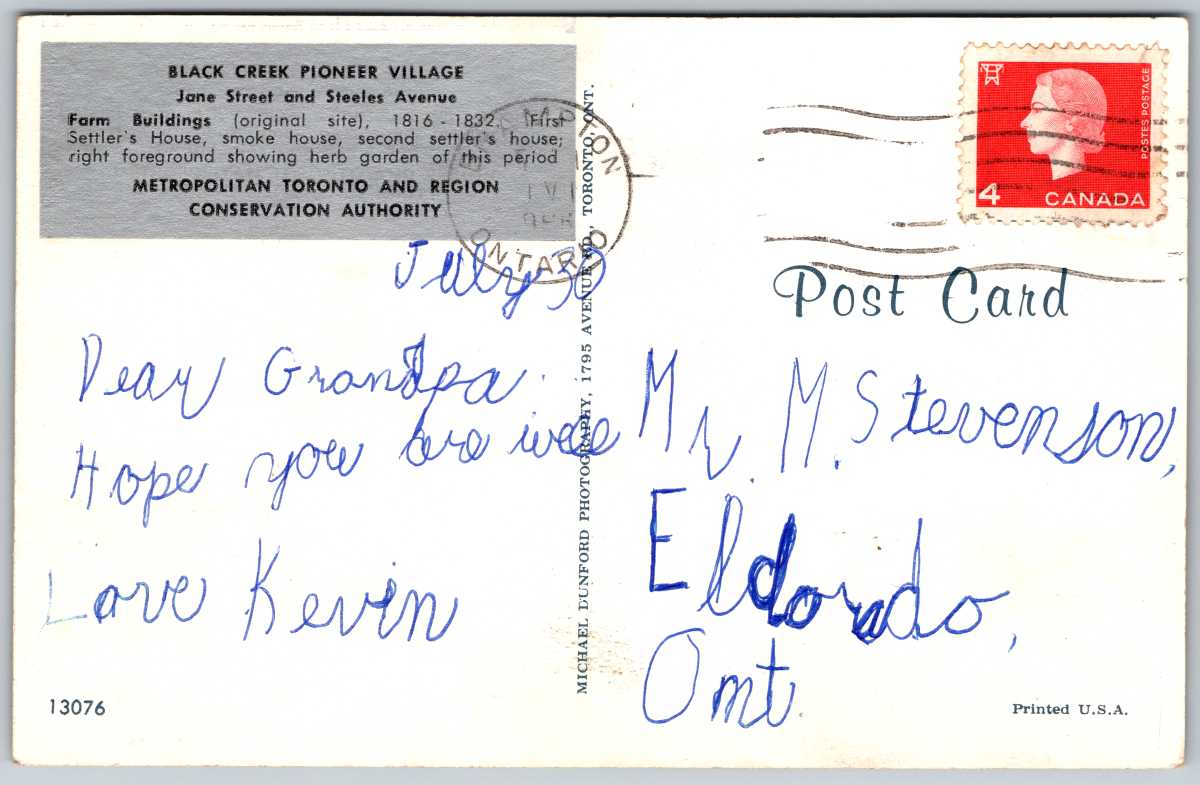 BLACK CREEK PIONEER VILLAGE
Jane Street and Steeles Avenue
Farm Buildings (original site), 1816 - 1832, First
Settler's House, smoke house, second settler's house;
right foreground showing herb garden of this period
METROPOLITAN TORONTO AND REGION
CONSERVATION AUTHORITY
ONTARIO
July 30
Dear Grandpa.
Hope you are well
Love Kevin
13076
MICHAEL DUNFORD PHOTOGRAPHY, 1795 AVENUE RD., TORONTO, ONT.
POSTES POSTAGE
4 CANADA
Post Card
Mr. M. Stevenson,
Eldorado,
Ont.
Printed U.S.A.